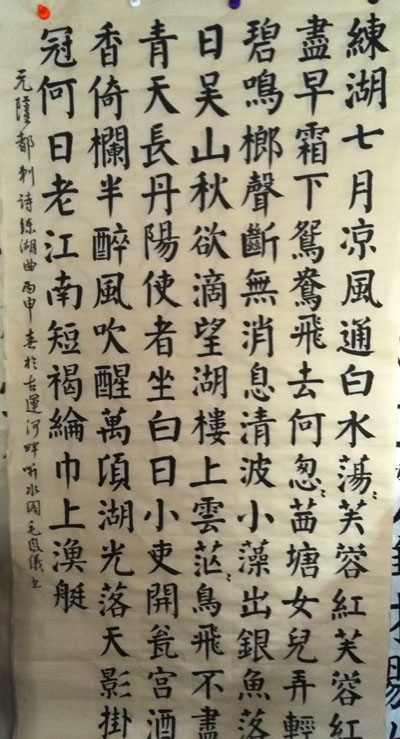 練湖七月凉風通白水蕩〻芙蓉紅芙蓉紅
盡早霜下鴛鴦飛去何怱〻茜塘女兒弄輕
碧鳴榔聲斷無消息清波小藻出銀魚落
日吴山秋欲滴望湖樓上雲茫〻鳥飛不盡
青天長丹陽使者坐白日小吏開瓮宫酒
香倚欄半醉風吹醒萬頃湖光落天影掛
冠何日老江南短褐綸巾上漁艇
元薩都刺詩練湖曲丙申春於古運河畔听水阁毛儀书